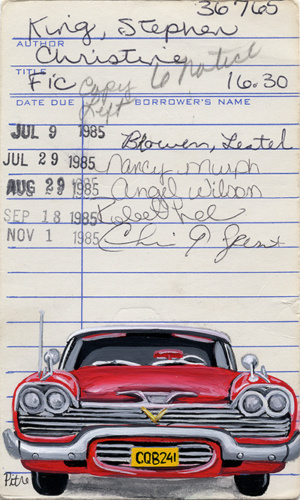 36765
King, Stephen
AUTHOR
Christine
TITLE
Fic 16.30
Copy
Left
DATE DUE BORROWER'S NAME
JUL 9 1985
JUL 29 1985 Nancy Murph
AUG 29 1985 Angel Wilson
SEP 18 1985
NOV 1 1985
CQB241
Petre